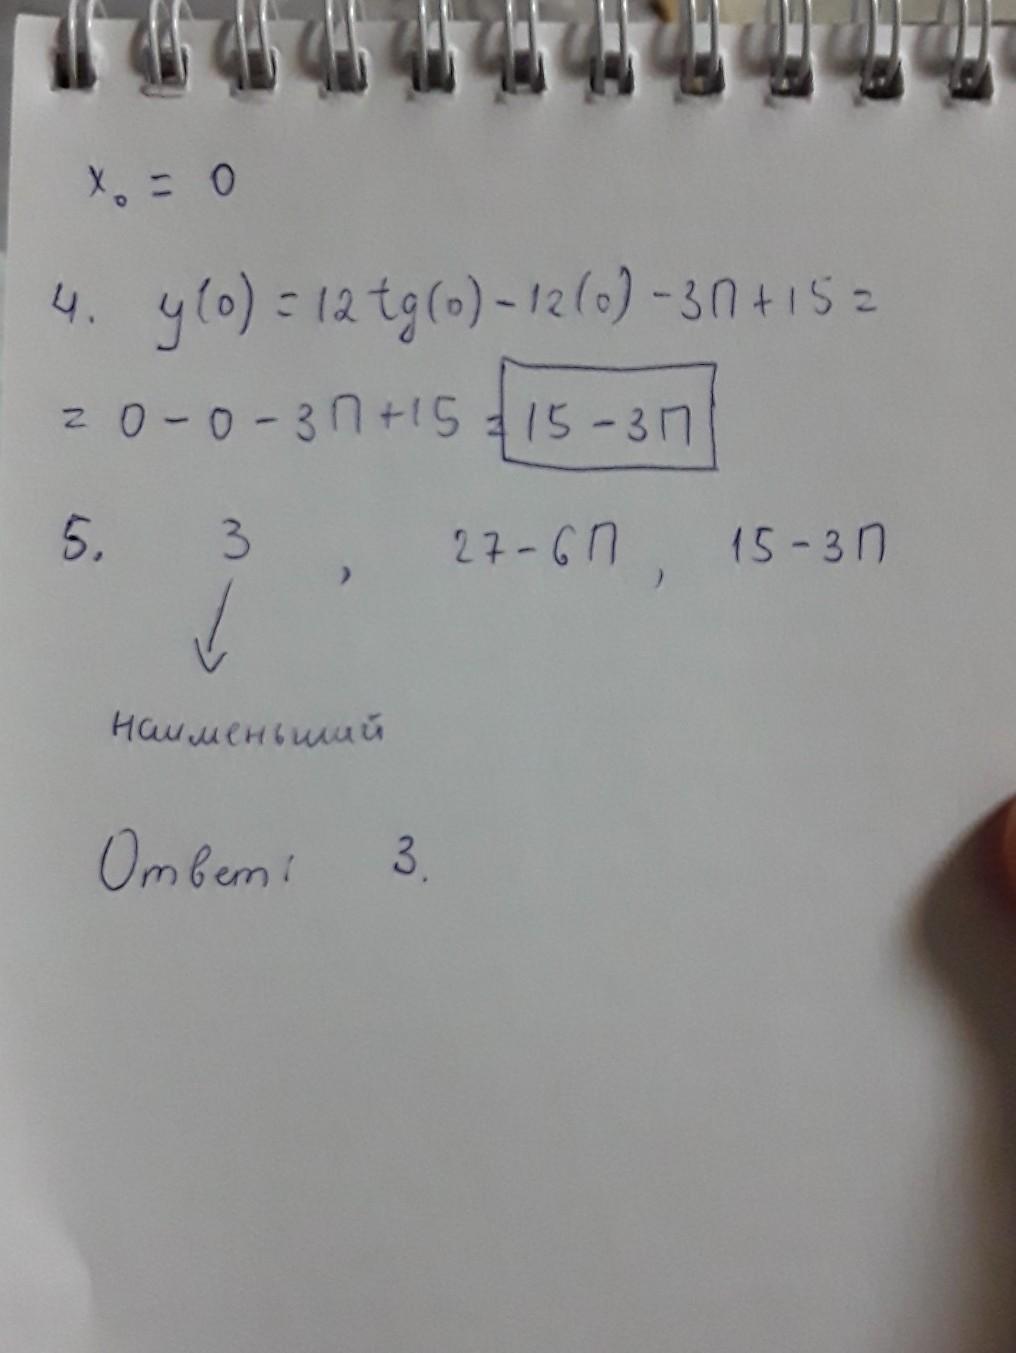 x₀ = 0
4. y(0) = 12 tg(0) - 12(0) - 3П + 15 =
= 0 - 0 - 3П + 15 = 15 - 3П
5. 3 , 27 - 6П , 15 - 3П
наименьший
Ответ: 3.